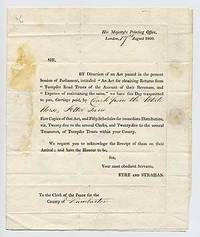 His Majesty's Printing Office,
London, 17th August 1820.
SIR,
BY Direction of an Act passed in the present
Session of Parliament, intituled "An Act for obtaining Returns from
"Turnpike Road Trusts of the Amount of their Revenues, and
"Expence of maintaining the same," we have this Day transmitted
to you, Carriage paid, by Coach from the White
Horse, Fetter Lane
Five Copies of that Act, and Fifty Schedules for immediate Distribution,
viz. Twenty-five to the several Clerks, and Twenty-five to the several
Treasurers, of Turnpike Trusts within your County.
We request you to acknowledge the Receipt of them on their
Arrival; and have the Honour to be,
Sir,
Your most obedient Servants,
EYRE AND STRAHAN.
To the Clerk of the Peace for the
County of Dumbarton